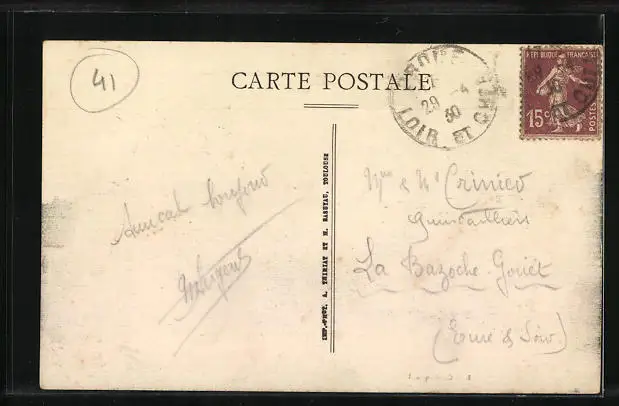 41
CARTE POSTALE
29 - 4
30
LOIR ET CHER
REPUBLIQUE FRANÇAISE
15c
POSTES
Amical bonjour
IMP.-PHOT. A. THIRIAT ET M. BASUYAU, TOULOUSE
Mme & Mr Crinier
Quincailliers
La Bazoche-Gouët
(Eure & Loir)